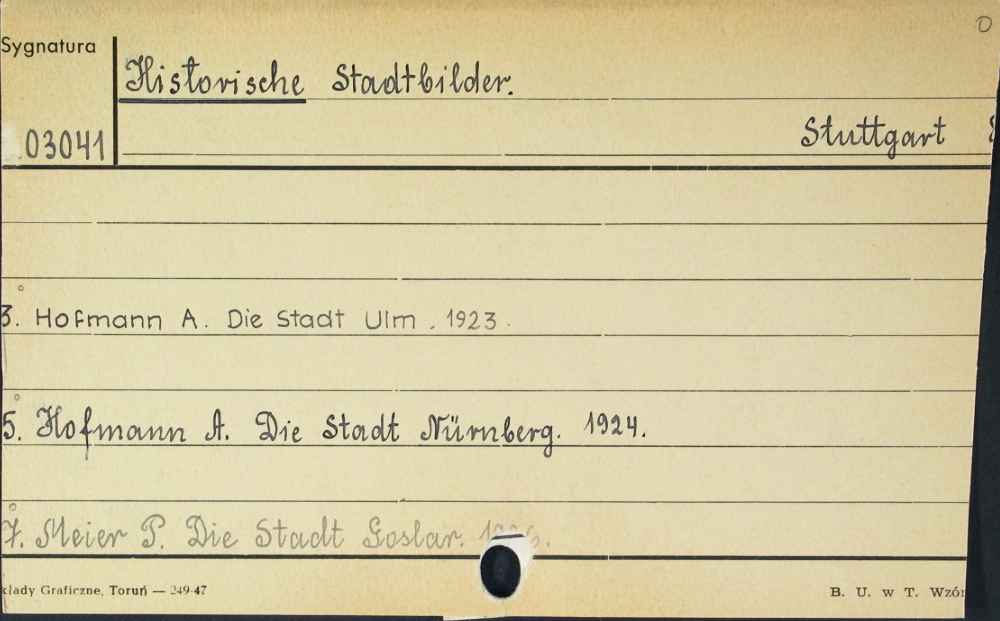 Sygnatura
Historische Stadtbilder.
03041
Stuttgart
3. Hofmann A. Die Stadt Ulm. 1923.
5. Hofmann A. Die Stadt Nürnberg. 1924.
7. Meier P. Die Stadt Goslar.
kłady Graficzne, Toruń — 249-47
B. U. w T. Wzór